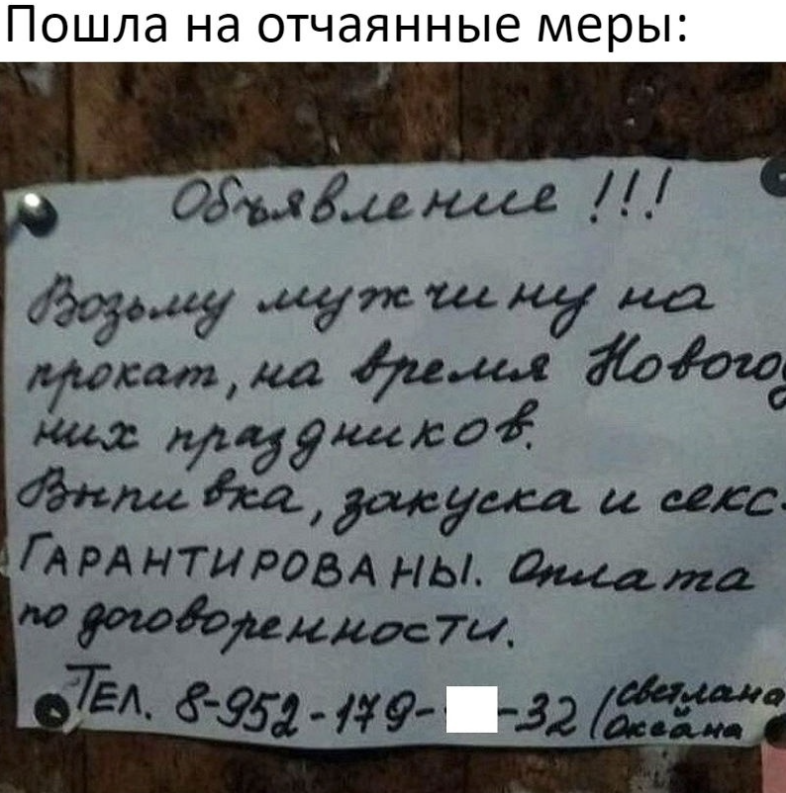 Пошла на отчаянные меры:
Объявление !!!
Возьму мужчину на
прокат, на время Новогод
них праздников.
Выпивка, закуска и секс-
ГАРАНТИРОВАНЫ. Оплата
по договоренности.
ТЕЛ. 8-952-179- -32 (Светлана
Оксана